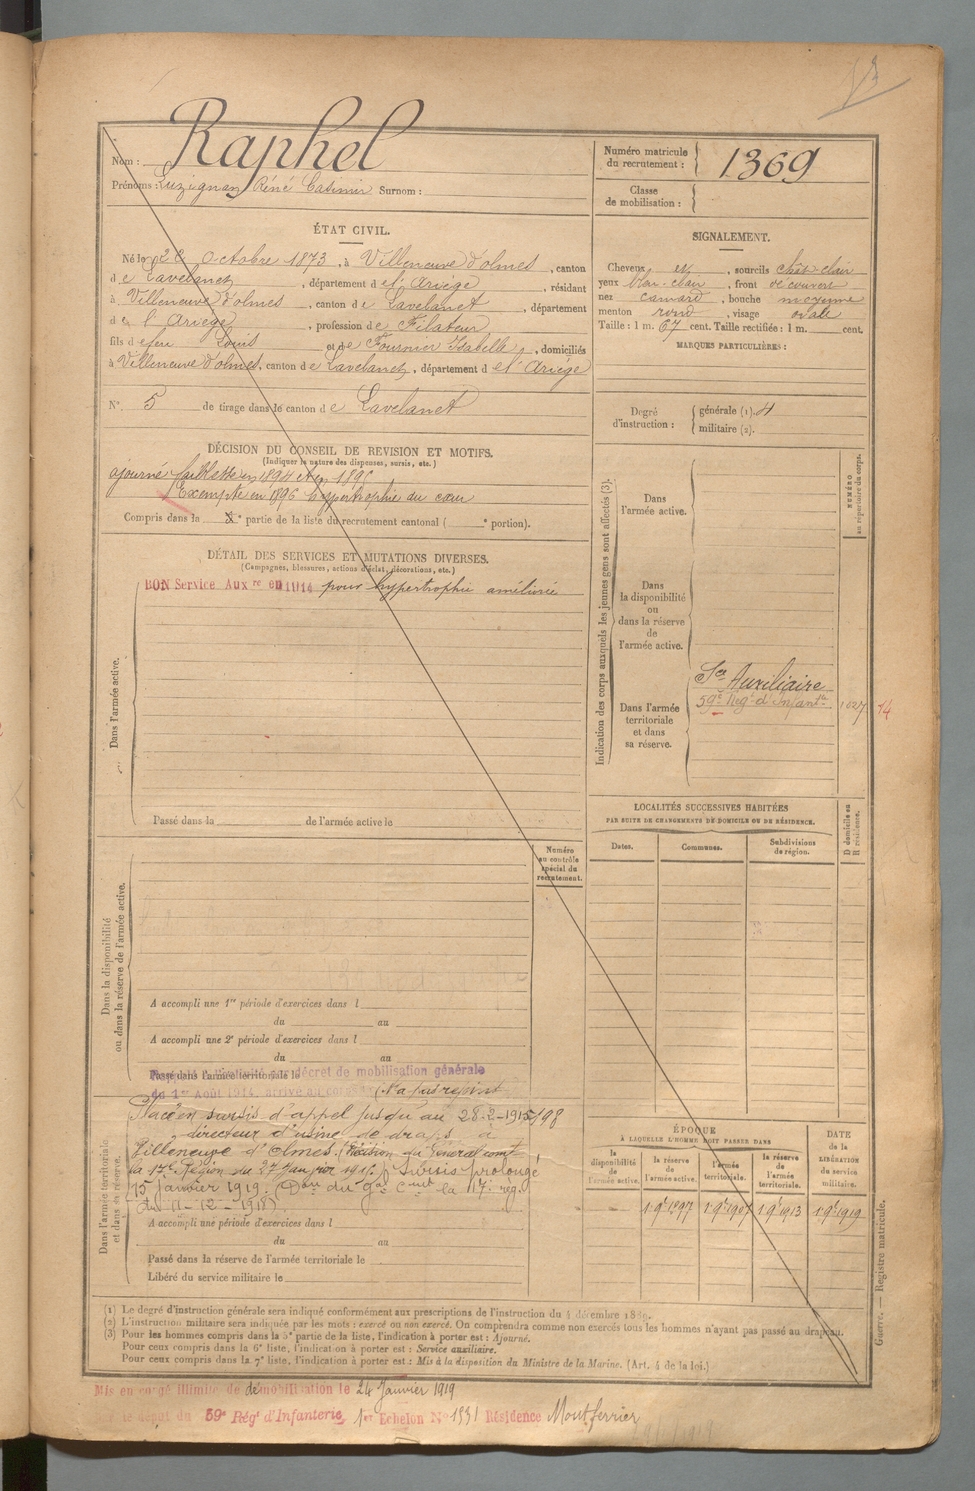 Nom : Raphel
Prénoms : Luzignan Réné Casimir Surnom :
Numéro matricule du recrutement : 1369
Classe de mobilisation :
ÉTAT CIVIL.
Né le 28 Octobre 1873, à Villeneuve d'olmes, canton
de Lavelanet, département de l'Ariège, résidant
à Villeneuve d'olmes, canton de Lavelanet, département
de l'Ariège, profession de Filateur
fils de feu Louis et de Fournier Isabelle, domiciliés
à Villeneuve d'olmes, canton de Lavelanet, département de l'Ariège
N° 5 de tirage dans le canton de Lavelanet
SIGNALEMENT.
Cheveux et, sourcils chât-clair
yeux bleu-clair, front découvert
nez camard, bouche moyenne
menton rond, visage ovale
Taille : 1 m. 67 cent. Taille rectifiée : 1 m. cent.
MARQUES PARTICULIÈRES :
Degré d'instruction : générale (1). 4
militaire (2).
DÉCISION DU CONSEIL DE REVISION ET MOTIFS.
(Indiquer la nature des dispenses, sursis, etc.)
ajourné faiblesse en 1894 et en 1895
Exempté en 1896 hypertrophie du cœur
Compris dans la e partie de la liste du recrutement cantonal ( e portion).
DÉTAIL DES SERVICES ET MUTATIONS DIVERSES.
(Campagnes, blessures, actions d'éclat, décorations, etc.)
BON Service Aux re en 1914 pour hypertrophie améliorée
Dans l'armée active.
Passé dans la de l'armée active le
Indication des corps auxquels les jeunes gens sont affectés (3).
NUMÉRO au répertoire du corps.
Dans l'armée active.
Dans la disponibilité ou dans la réserve de l'armée active.
Dans l'armée territoriale et dans sa réserve.
Sce Auxiliaire
59e Régt d'Infantie
14
LOCALITÉS SUCCESSIVES HABITÉES
PAR SUITE DE CHANGEMENTS DE DOMICILE OU DE RÉSIDENCE.
Dates. Communes. Subdivisions de région.
D domicile ou R résidence.
Numéro au contrôle spécial du recrutement.
Dans la disponibilité ou dans la réserve de l'armée active.
A accompli une 1re période d'exercices dans l
du au
A accompli une 2e période d'exercices dans l
du au
Passé dans l'armée territoriale le
décret de mobilisation générale
du 1er Août 1914, arrivé au corps
Placé en sursis d'appel jusqu'au 28-2-1915 198
directeur d'usine de draps à
Villeneuve d'Olmes. (Décision du Général comt
la 17e Région du 27 Janvier 1915) Sursis prolongé
15 janvier 1919. (Don du Gal Cmdt la 17e rég.
du 11-12-1918)
Dans l'armée territoriale et dans sa réserve.
A accompli une période d'exercices dans l
du au
Passé dans la réserve de l'armée territoriale le
Libéré du service militaire le
ÉPOQUE
À LAQUELLE L'HOMME DOIT PASSER DANS
DATE de la LIBÉRATION du service militaire.
la disponibilité de l'armée active.
la réserve de l'armée active.
l'armée territoriale.
la réserve de l'armée territoriale.
1 9e 1897 1 9e 1907 1 9e 1913 1 9e 1919
Guerre. — Registre matricule.
(1) Le degré d'instruction générale sera indiqué conformément aux prescriptions de l'instruction du 4 décembre 1889.
(2) L'instruction militaire sera indiquée par les mots : exercé ou non exercé. On comprendra comme non exercés tous les hommes n'ayant pas passé au drapeau.
(3) Pour les hommes compris dans la 5e partie de la liste, l'indication à porter est : Ajourné.
Pour ceux compris dans la 6e liste, l'indication à porter est : Service auxiliaire.
Pour ceux compris dans la 7e liste, l'indication à porter est : Mis à la disposition du Ministre de la Marine. (Art. 4 de la loi.)
Mis en congé illimité de démobilisation le 24 Janvier 1919
le dépôt du 59e Régt d'Infanterie, 1er Echelon N° 1531 Résidence Montferrier